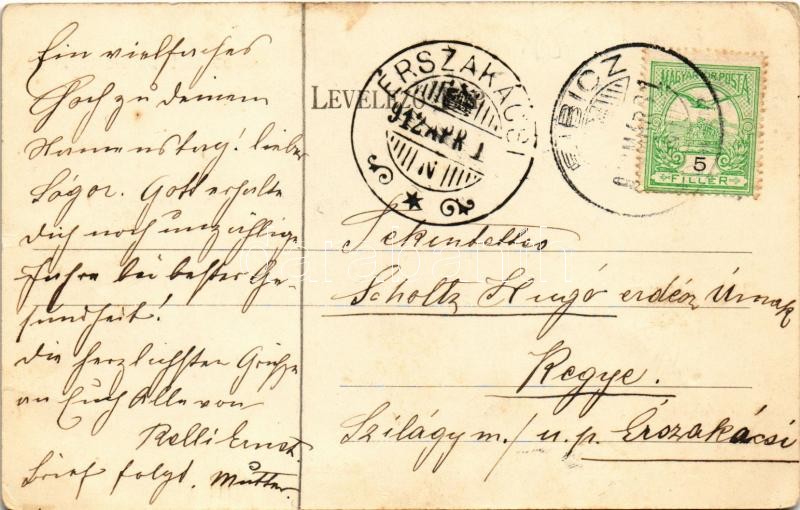 Ein vielfaches
Hoch zu deinem
Namenstag! lieber
Sógor. Gott erhalte
dich noch unzählige
Jahre bei bester Ge-
sundheit!
die herzlichsten Grüße
an Euch Alle von
Relli Ernst.
Brief folgt. Mutter.
LEVELEZŐ
ÉRSZAKÁCSI
912 APR 1
N
MAGYAR KIR. POSTA
5
FILLÉR
Tekintettes
Scholtz Hugó erdész Úrnak
Kegye.
Szilágy m./ u.p. Érszakácsi